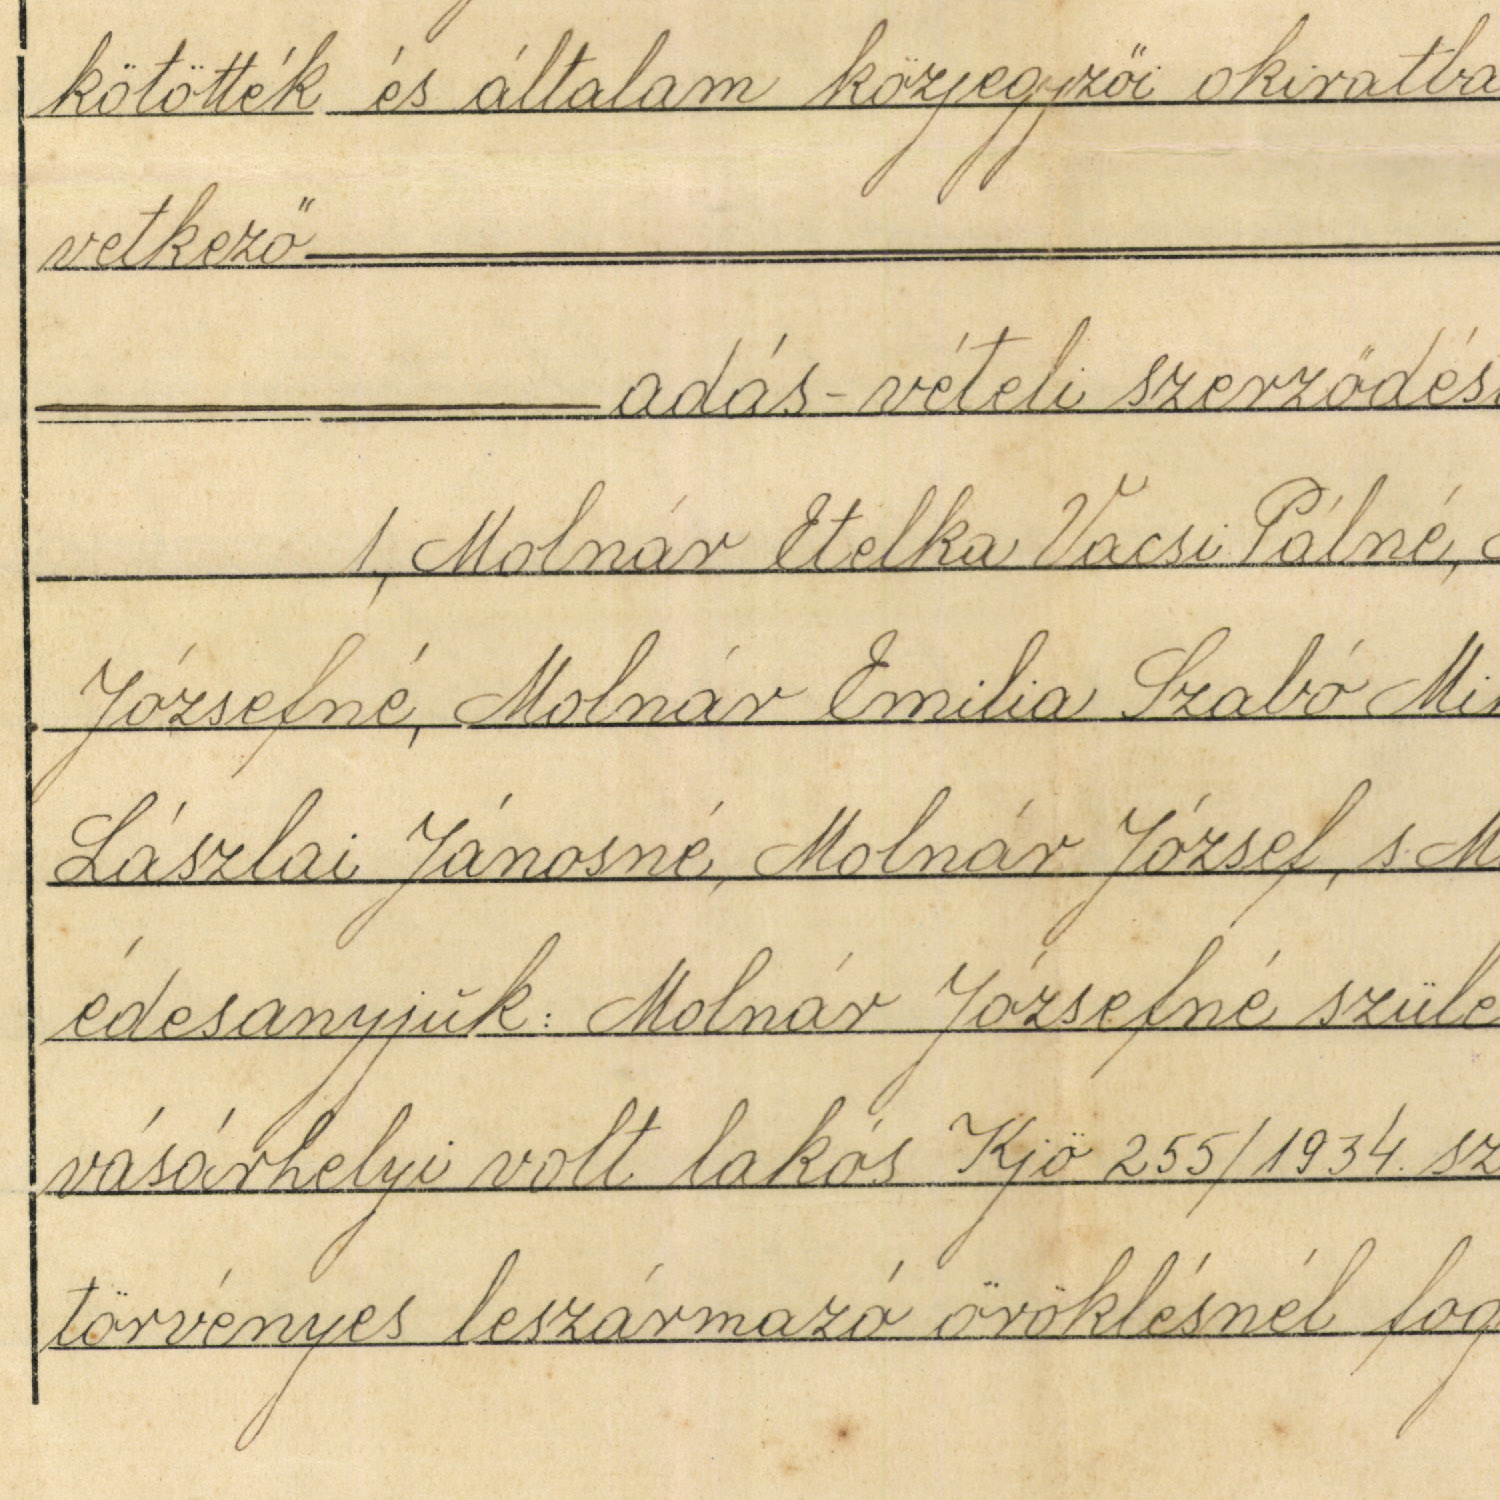 kötötték és általam közjegyzői okiratba
vetkező
adás-vételi szerződés
1, Molnár Etelka Vacsi Pálné,
Józsefné, Molnár Emilia Szabó
Lászlai Jánosné, Molnár József, s
édesanyjuk: Molnár Józsefné szüle
vásárhelyi volt lakós Kjö 255/1934. sz
törvényes leszármazó öröklésnél fog